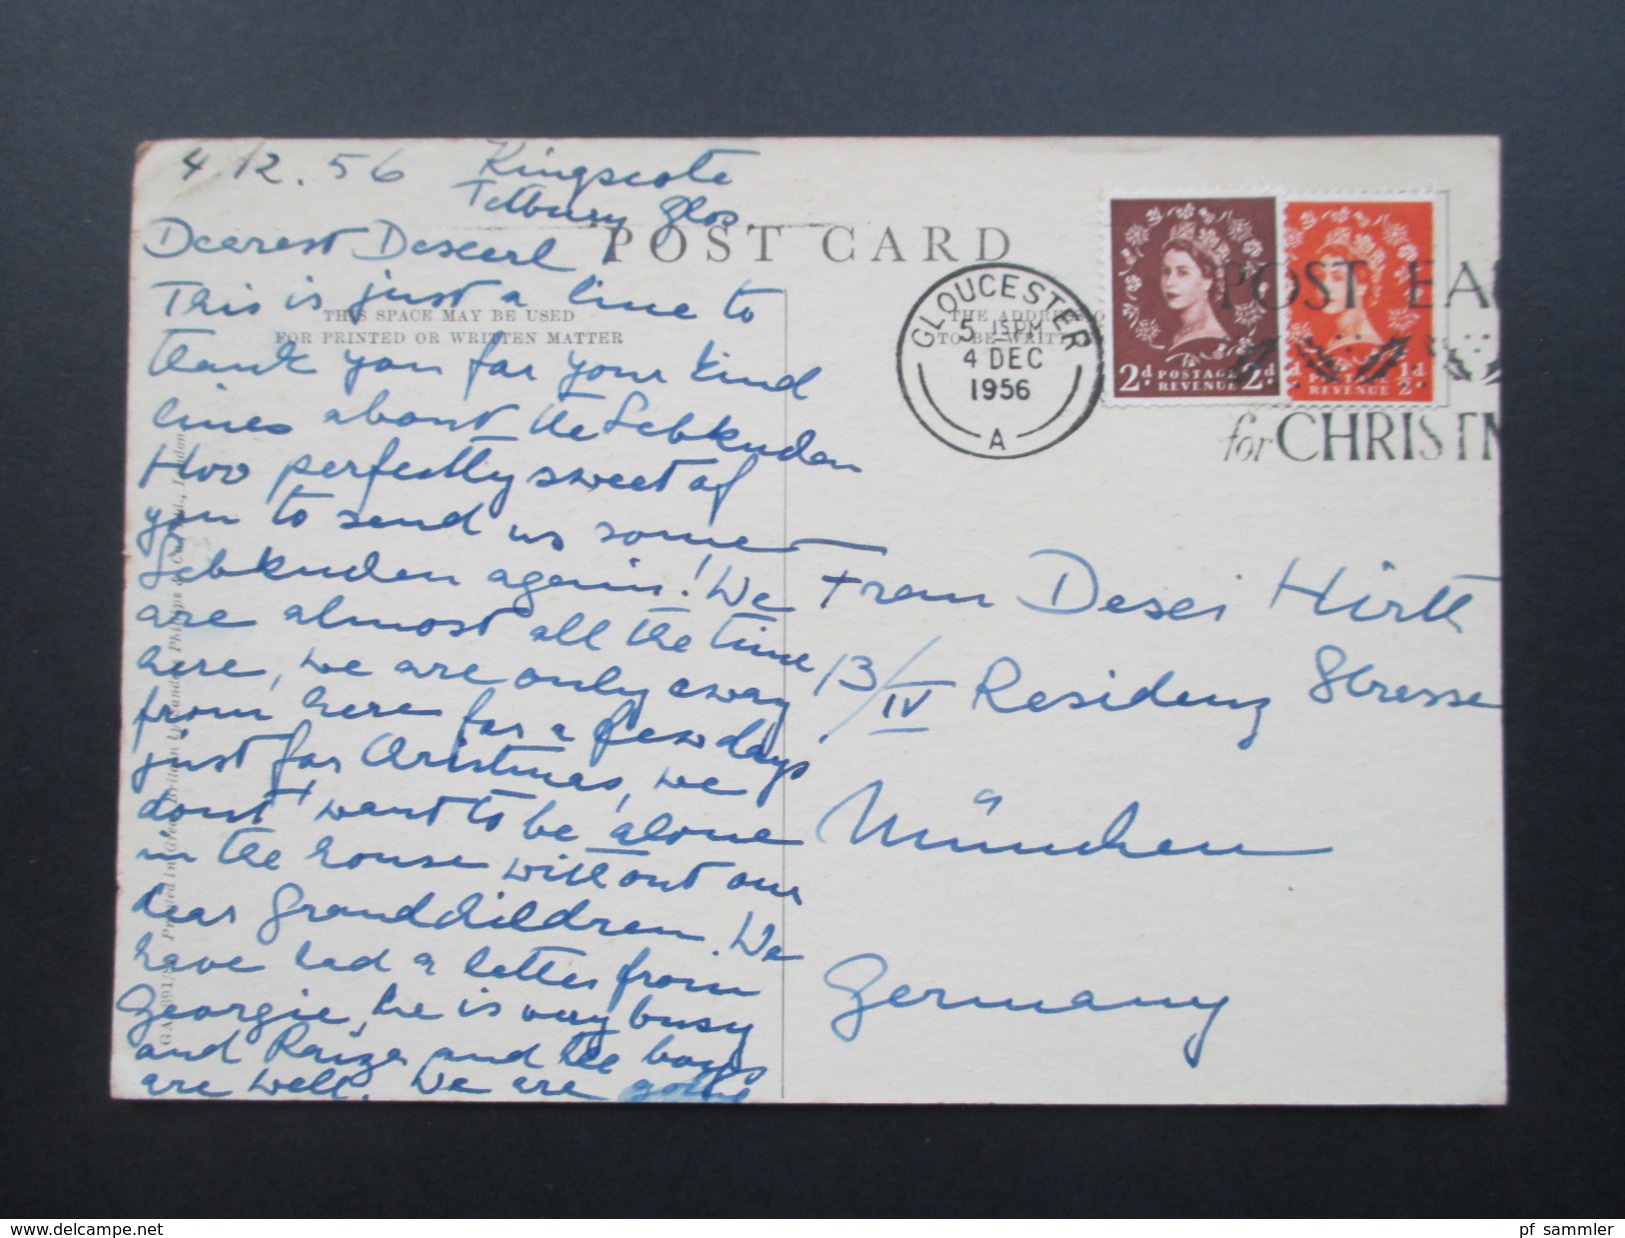 4.12.56 Kingscote
Tetbury Glos.
POST CARD
Dearest Deserl!
This is just a line to
THIS SPACE MAY BE USED
FOR PRINTED OR WRITTEN MATTER
thank you for your kind
lines about the Lebkuchen
How perfectly sweet of
you to send us some
Lebkuchen again! We
are almost all the time
here, we are only away
from here for a few days
just for Christmas, we
dont want to be alone
in the house without our
dear Grandchildren. We
have had a letter from
Georgie, he is very busy
and Raiza and the boys
are well. We are going
THE ADDRESS O
TO BE WRITT
GLOUCESTER
5 15PM
4 DEC
1956
A
2d. POSTAGE 2d.
REVENUE
POSTAGE ½d.
REVENUE
POST EA
for CHRISTM
Frau Desei Hirth
13/IV Residenz Strasse
München
Germany
Printed in Great Britain by Vandyck Philips & Co. Ltd., London